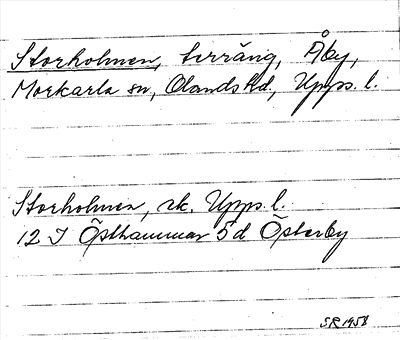 Storholmen, terräng, Åby,
Morkarla sn, Olands hd, Upps. l.
Storholmen, rk. Upps. l.
12 I Östhammar 5d Österby
SR 1958